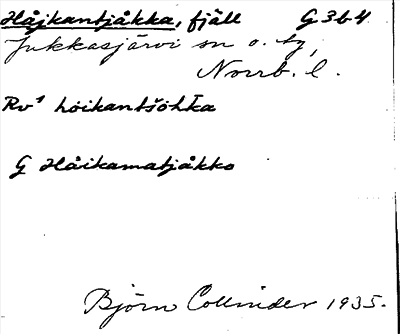 Håjkantjåkka, fjäll G 3b4
Jukkasjärvi sn o. tg,
Norrb. l.
Rv¹ hòikantšòhka
G Håikamatjåkko
Björn Collinder 1935.